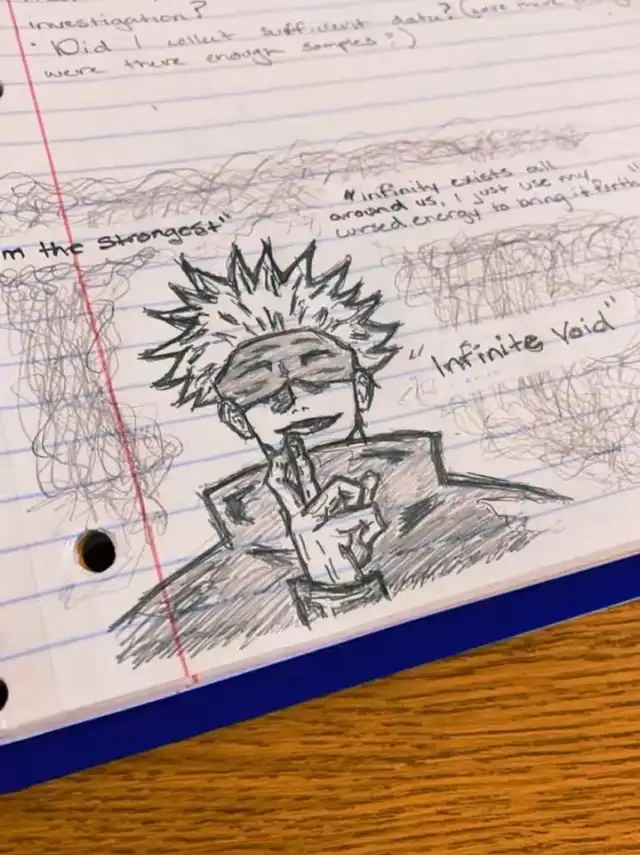 investigation?
• Did I collect sufficient data? (were there
were there enough samples?)
"infinity exists all
around us, I just use my
cursed energy to bring it forth"
m the strongest"
"Infinite Void"